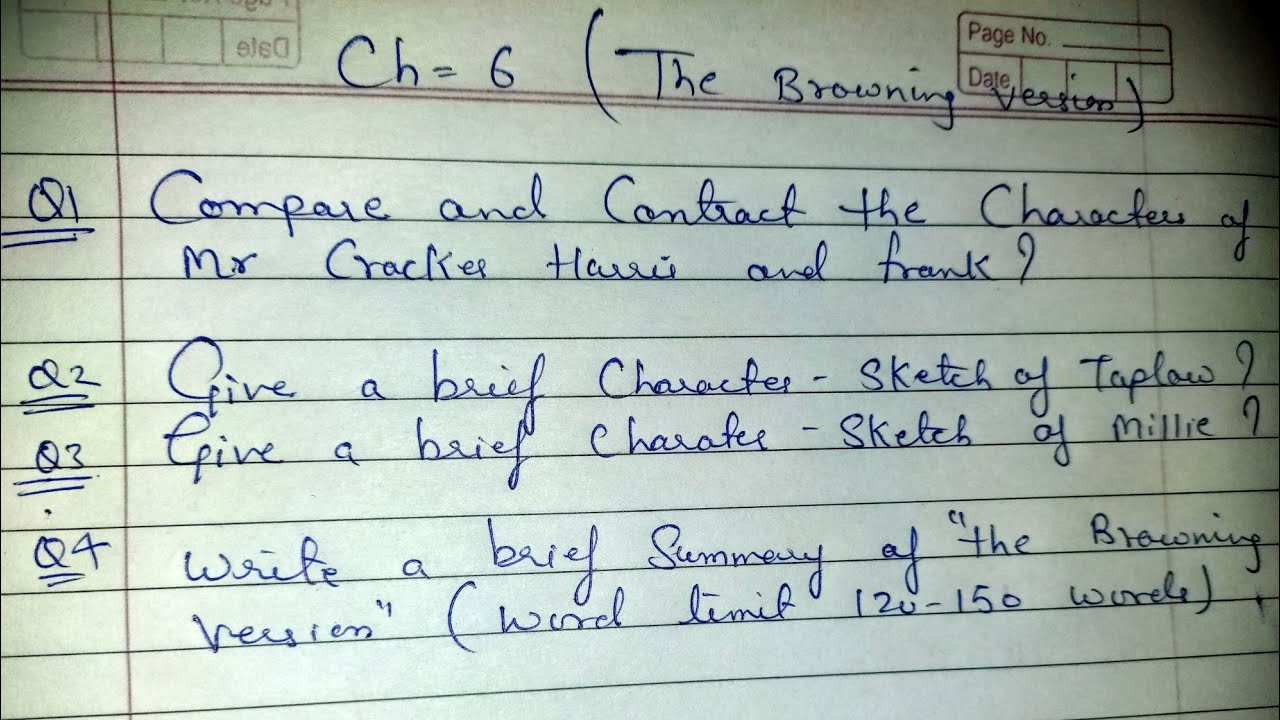 Date
Page No.
Date
Ch = 6 ( The Browning Version)
Q1 Compare and Contract the Characters of
Mr Cracker Harris and frank?
Q2 Give a brief Character - Sketch of Taplow?
Q3 Give a brief Charater - Sketch of Millie?
Q4 Write a brief Summary of "the Browning
Version" (word limit 120-150 words).